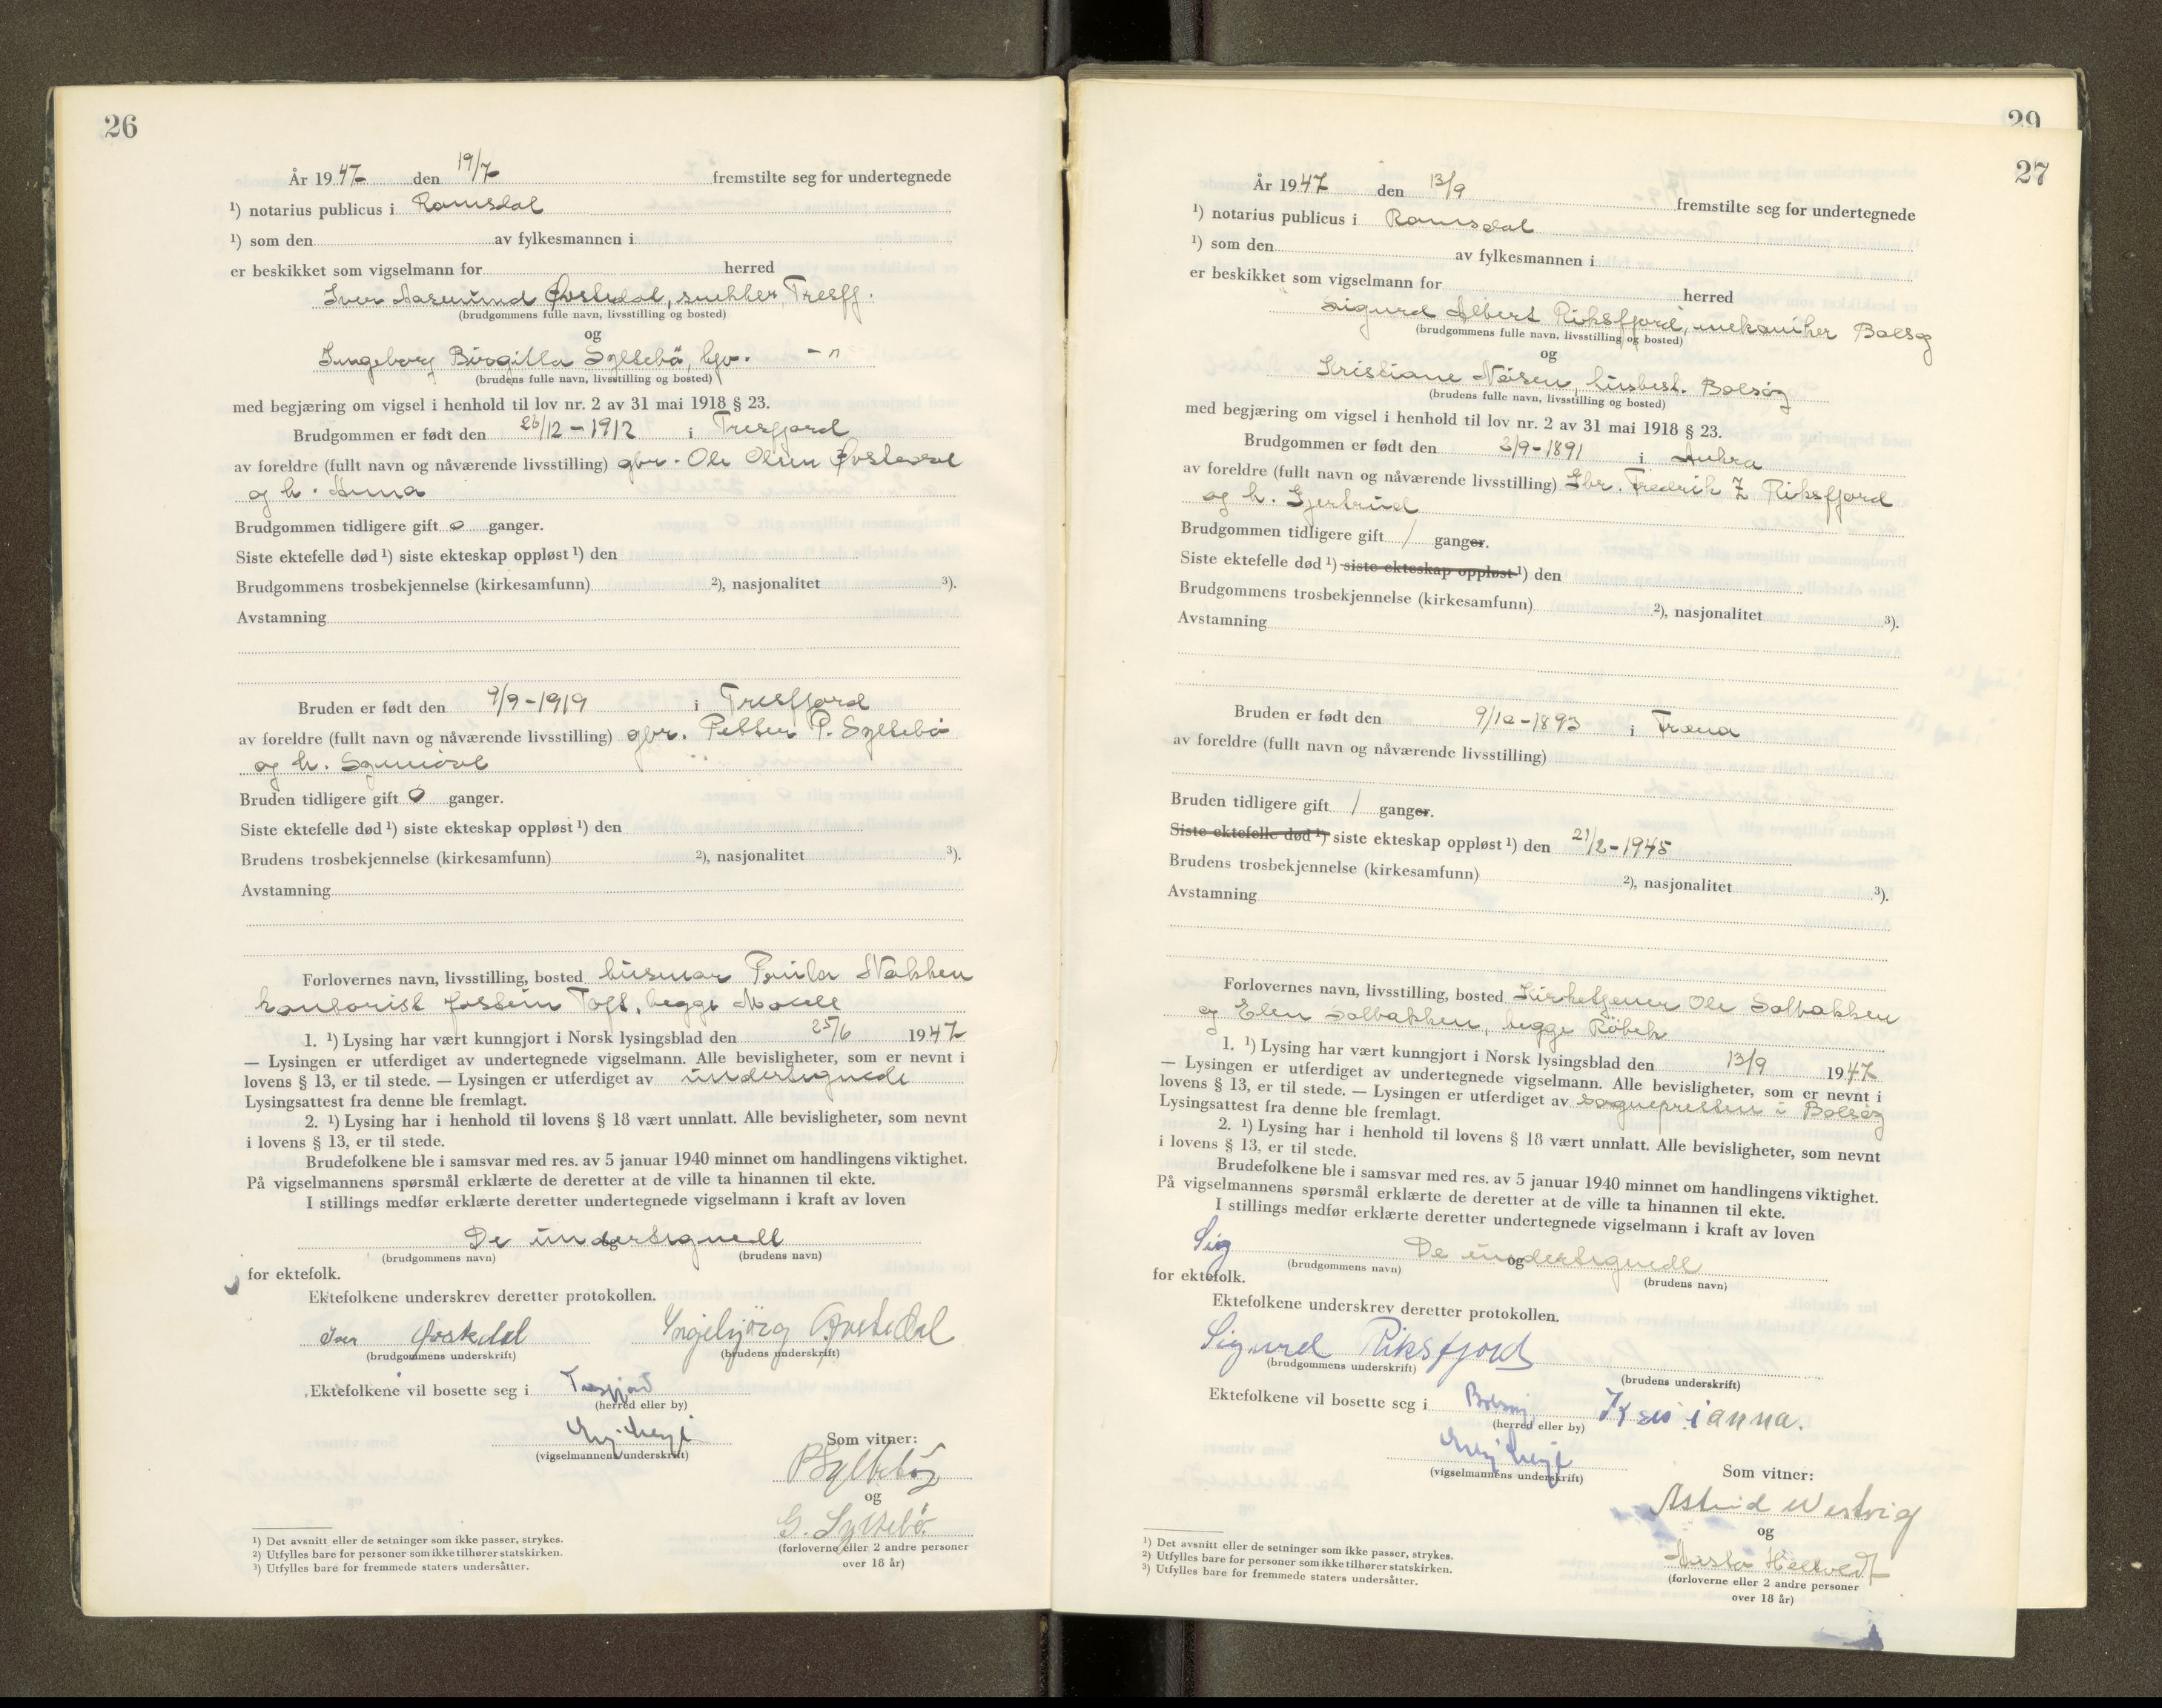 26
År 1947 den 19/7 fremstilte seg for undertegnede
¹) notarius publicus i Romsdal
¹) som den av fylkesmannen i
er beskikket som vigselmann for herred
Iver Aasmund Øvstedal, snekker Tresfj.
(brudgommens fulle navn, livsstilling og bosted)
og
Ingeborg Birgitta Syltebö, hjv. - "
(brudens fulle navn, livsstilling og bosted)
med begjæring om vigsel i henhold til lov nr. 2 av 31 mai 1918 § 23.
Brudgommen er født den 26/12-1912 i Tresfjord
av foreldre (fullt navn og nåværende livsstilling) gbr. Ole Olsen Øvstedal
og h. Anna
Brudgommen tidligere gift 0 ganger.
Siste ektefelle død ¹) siste ekteskap oppløst ¹) den
Brudgommens trosbekjennelse (kirkesamfunn) ²), nasjonalitet ³).
Avstamning
Bruden er født den 9/9-1919 i Tresfjord
av foreldre (fullt navn og nåværende livsstilling) gbr. Petter P. Syltebö
og h.
Bruden tidligere gift 0 ganger.
Siste ektefelle død ¹) siste ekteskap oppløst ¹) den
Brudens trosbekjennelse (kirkesamfunn) ²), nasjonalitet ³).
Avstamning
Forlovernes navn, livsstilling, bosted husmor Nakken
kontorist Jostein Toft, begge Molde
1. ¹) Lysing har vært kunngjort i Norsk lysingsblad den 25/6 1947
— Lysingen er utferdiget av undertegnede vigselmann. Alle bevisligheter, som er nevnt i
lovens § 13, er til stede. — Lysingen er utferdiget av undertegnede
Lysingsattest fra denne ble fremlagt.
2. ¹) Lysing har i henhold til lovens § 18 vært unnlatt. Alle bevisligheter, som nevnt
i lovens § 13, er til stede.
Brudefolkene ble i samsvar med res. av 5 januar 1940 minnet om handlingens viktighet.
På vigselmannens spørsmål erklærte de deretter at de ville ta hinannen til ekte.
I stillings medfør erklærte deretter undertegnede vigselmann i kraft av loven
De undertegnede
og
(brudgommens navn) (brudens navn)
for ektefolk.
Ektefolkene underskrev deretter protokollen.
Iver Øvstedal Ingebjörg Øvstedal
(brudgommens underskrift) (brudens underskrift)
Ektefolkene vil bosette seg i Tresfjord
(herred eller by)
(vigselmannens underskrift)
Som vitner:
P Syltebö
og
G. Syltebö
(forloverne eller 2 andre personer
over 18 år)
¹) Det avsnitt eller de setninger som ikke passer, strykes.
²) Utfylles bare for personer som ikke tilhører statskirken.
³) Utfylles bare for fremmede staters undersåtter.
29
27
År 1947 den 13/9 fremstilte seg for undertegnede
¹) notarius publicus i Romsdal
¹) som den av fylkesmannen i
er beskikket som vigselmann for herred
Sigurd Albert Riksfjord, mekaniker Bolsøy
(brudgommens fulle navn, livsstilling og bosted)
og
Kristiane Nilsen, husbest. Bolsøy
(brudens fulle navn, livsstilling og bosted)
med begjæring om vigsel i henhold til lov nr. 2 av 31 mai 1918 § 23.
Brudgommen er født den 3/9-1891 i Aukra
av foreldre (fullt navn og nåværende livsstilling) Gbr. Fredrik Z Riksfjord
og h. Gjertrud
Brudgommen tidligere gift 1 ganger.
Siste ektefelle død ¹) siste ekteskap oppløst ¹) den
Brudgommens trosbekjennelse (kirkesamfunn) ²), nasjonalitet ³).
Avstamning
Bruden er født den 9/10-1893 i Træna
av foreldre (fullt navn og nåværende livsstilling)
Bruden tidligere gift 1 ganger.
Siste ektefelle død ¹) siste ekteskap oppløst ¹) den 21/2-1945
Brudens trosbekjennelse (kirkesamfunn) ²), nasjonalitet ³).
Avstamning
Forlovernes navn, livsstilling, bosted Kirketjener Ole Solbakken
og Elen Solbakken, begge Röbek
1. ¹) Lysing har vært kunngjort i Norsk lysingsblad den 13/9 1947
— Lysingen er utferdiget av undertegnede vigselmann. Alle bevisligheter, som er nevnt i
lovens § 13, er til stede. — Lysingen er utferdiget av sogneprestern i Bolsøy
Lysingsattest fra denne ble fremlagt.
2. ¹) Lysing har i henhold til lovens § 18 vært unnlatt. Alle bevisligheter, som nevnt
i lovens § 13, er til stede.
Brudefolkene ble i samsvar med res. av 5 januar 1940 minnet om handlingens viktighet.
På vigselmannens spørsmål erklærte de deretter at de ville ta hinannen til ekte.
I stillings medfør erklærte deretter undertegnede vigselmann i kraft av loven
Sig De undertegnede
og
(brudgommens navn) (brudens navn)
for ektefolk.
Ektefolkene underskrev deretter protokollen.
Sigurd Riksfjord
(brudgommens underskrift) (brudens underskrift)
Ektefolkene vil bosette seg i Bolsøy
(herred eller by)
(vigselmannens underskrift)
Som vitner:
Astrid Westvig
og
(forloverne eller 2 andre personer
over 18 år)
¹) Det avsnitt eller de setninger som ikke passer, strykes.
²) Utfylles bare for personer som ikke tilhører statskirken.
³) Utfylles bare for fremmede staters undersåtter.